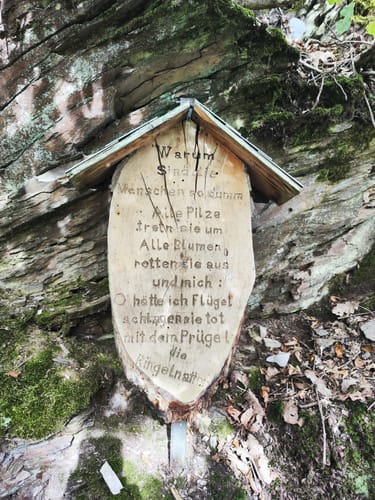 Warum
Sind die
Menschen so dumm
Alle Pilze
tretn sie um
Alle Blumen
rotten sie aus
und mich :
O' hätte ich Flügel
schlagen sie tot
mit dem Prügel
die
Ringelnatter